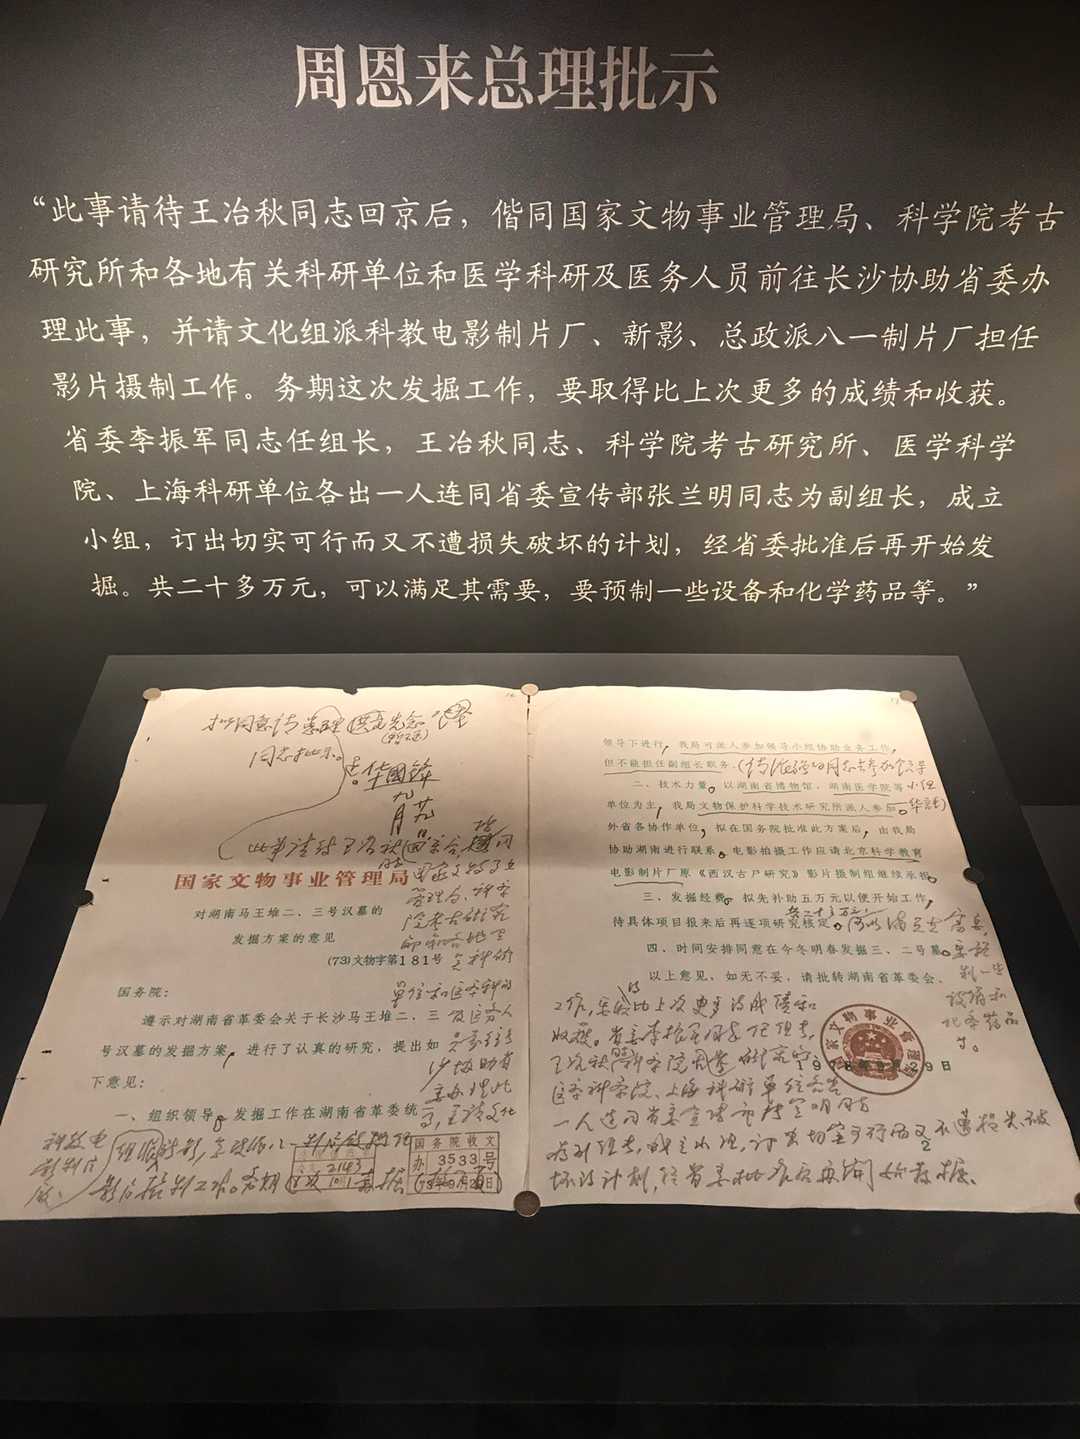 周恩来总理批示
“此事请待王冶秋同志回京后，偕同国家文物事业管理局、科学院考古
研究所和各地有关科研单位和医学科研及医务人员前往长沙协助省委办
理此事，并请文化组派科教电影制片厂、新影、总政派八一制片厂担任
影片摄制工作。务期这次发掘工作，要取得比上次更多的成绩和收获。
省委李振军同志任组长，王冶秋同志、科学院考古研究所、医学科学
院、上海科研单位各出一人连同省委宣传部张兰明同志为副组长，成立
小组，订出切实可行而又不遭损失破坏的计划，经省委批准后再开始发
掘。共二十多万元，可以满足其需要，要预制一些设备和化学药品等。”
拟同意请总理
同志批示。
华国锋
国家文物事业管理局
对湖南马王堆二、三号汉墓的
发掘方案的意见
(73)文物字第181号
国务院：
遵示对湖南省革委会关于长沙马王堆二、三
号汉墓的发掘方案，进行了认真的研究，提出如
下意见：
一、组织领导。发掘工作在湖南省革委统
国务院收文
办3533号
领导下进行，我局可派人参加领导小组协助业务工作，
但不能担任副组长职务。
二、技术力量。以湖南省博物馆、湖南医学院等
单位为主，我局文物保护科学技术研究所派人参加。
外省各协作单位，拟在国务院批准此方案后，由我局
协助湖南进行联系。电影拍摄工作应请北京科学教育
电影制片厂原《西汉古尸研究》影片摄制组继续承担。
三、发掘经费。拟先补助五万元以便开始工作，
待具体项目报来后再逐项研究核定。
四、时间安排同意在今冬明春发掘三、二号墓。
以上意见，如无不妥，请批转湖南省革委会。
工作，要取得比上次更多的成绩和
收获。省委李振军同志任组长，
王冶秋同志、科学院考古研究所、
医学科学院、上海科研单位各出
一人连同省委宣传部张兰明同志
为副组长，成立小组，订出切实可行而又不遭损失破
坏的计划，经省委批准后再开始发掘。